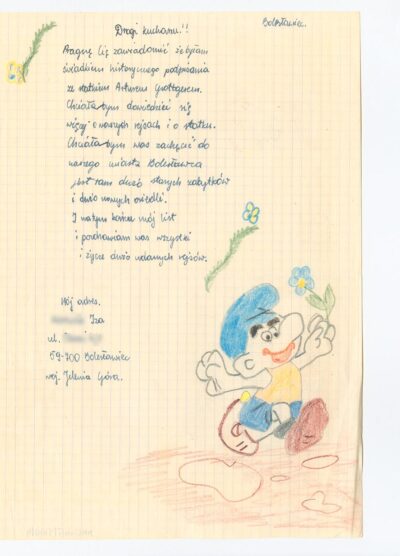 Bolesławiec.
Drogi kucharzu!!
Pragnę Cię zawiadomić że byłam
świadkiem historycznego podpisania
ze statkiem Arturem Grottgerem.
Chciałabym dowiedzieć się
więcej o waszych rejsach i o statku.
Chciałabym was zachęcić do
naszego miasta Bolesławca
jest tam dużo starych zabytków
i dużo nowych osiedli.
I na tym kończę mój list
i pozdrawiam was wszystki
i życzę dużo udanych rejsów.
Mój adres.
Iza
ul.
59-700 Bolesławiec
woj. Jelenia Góra.